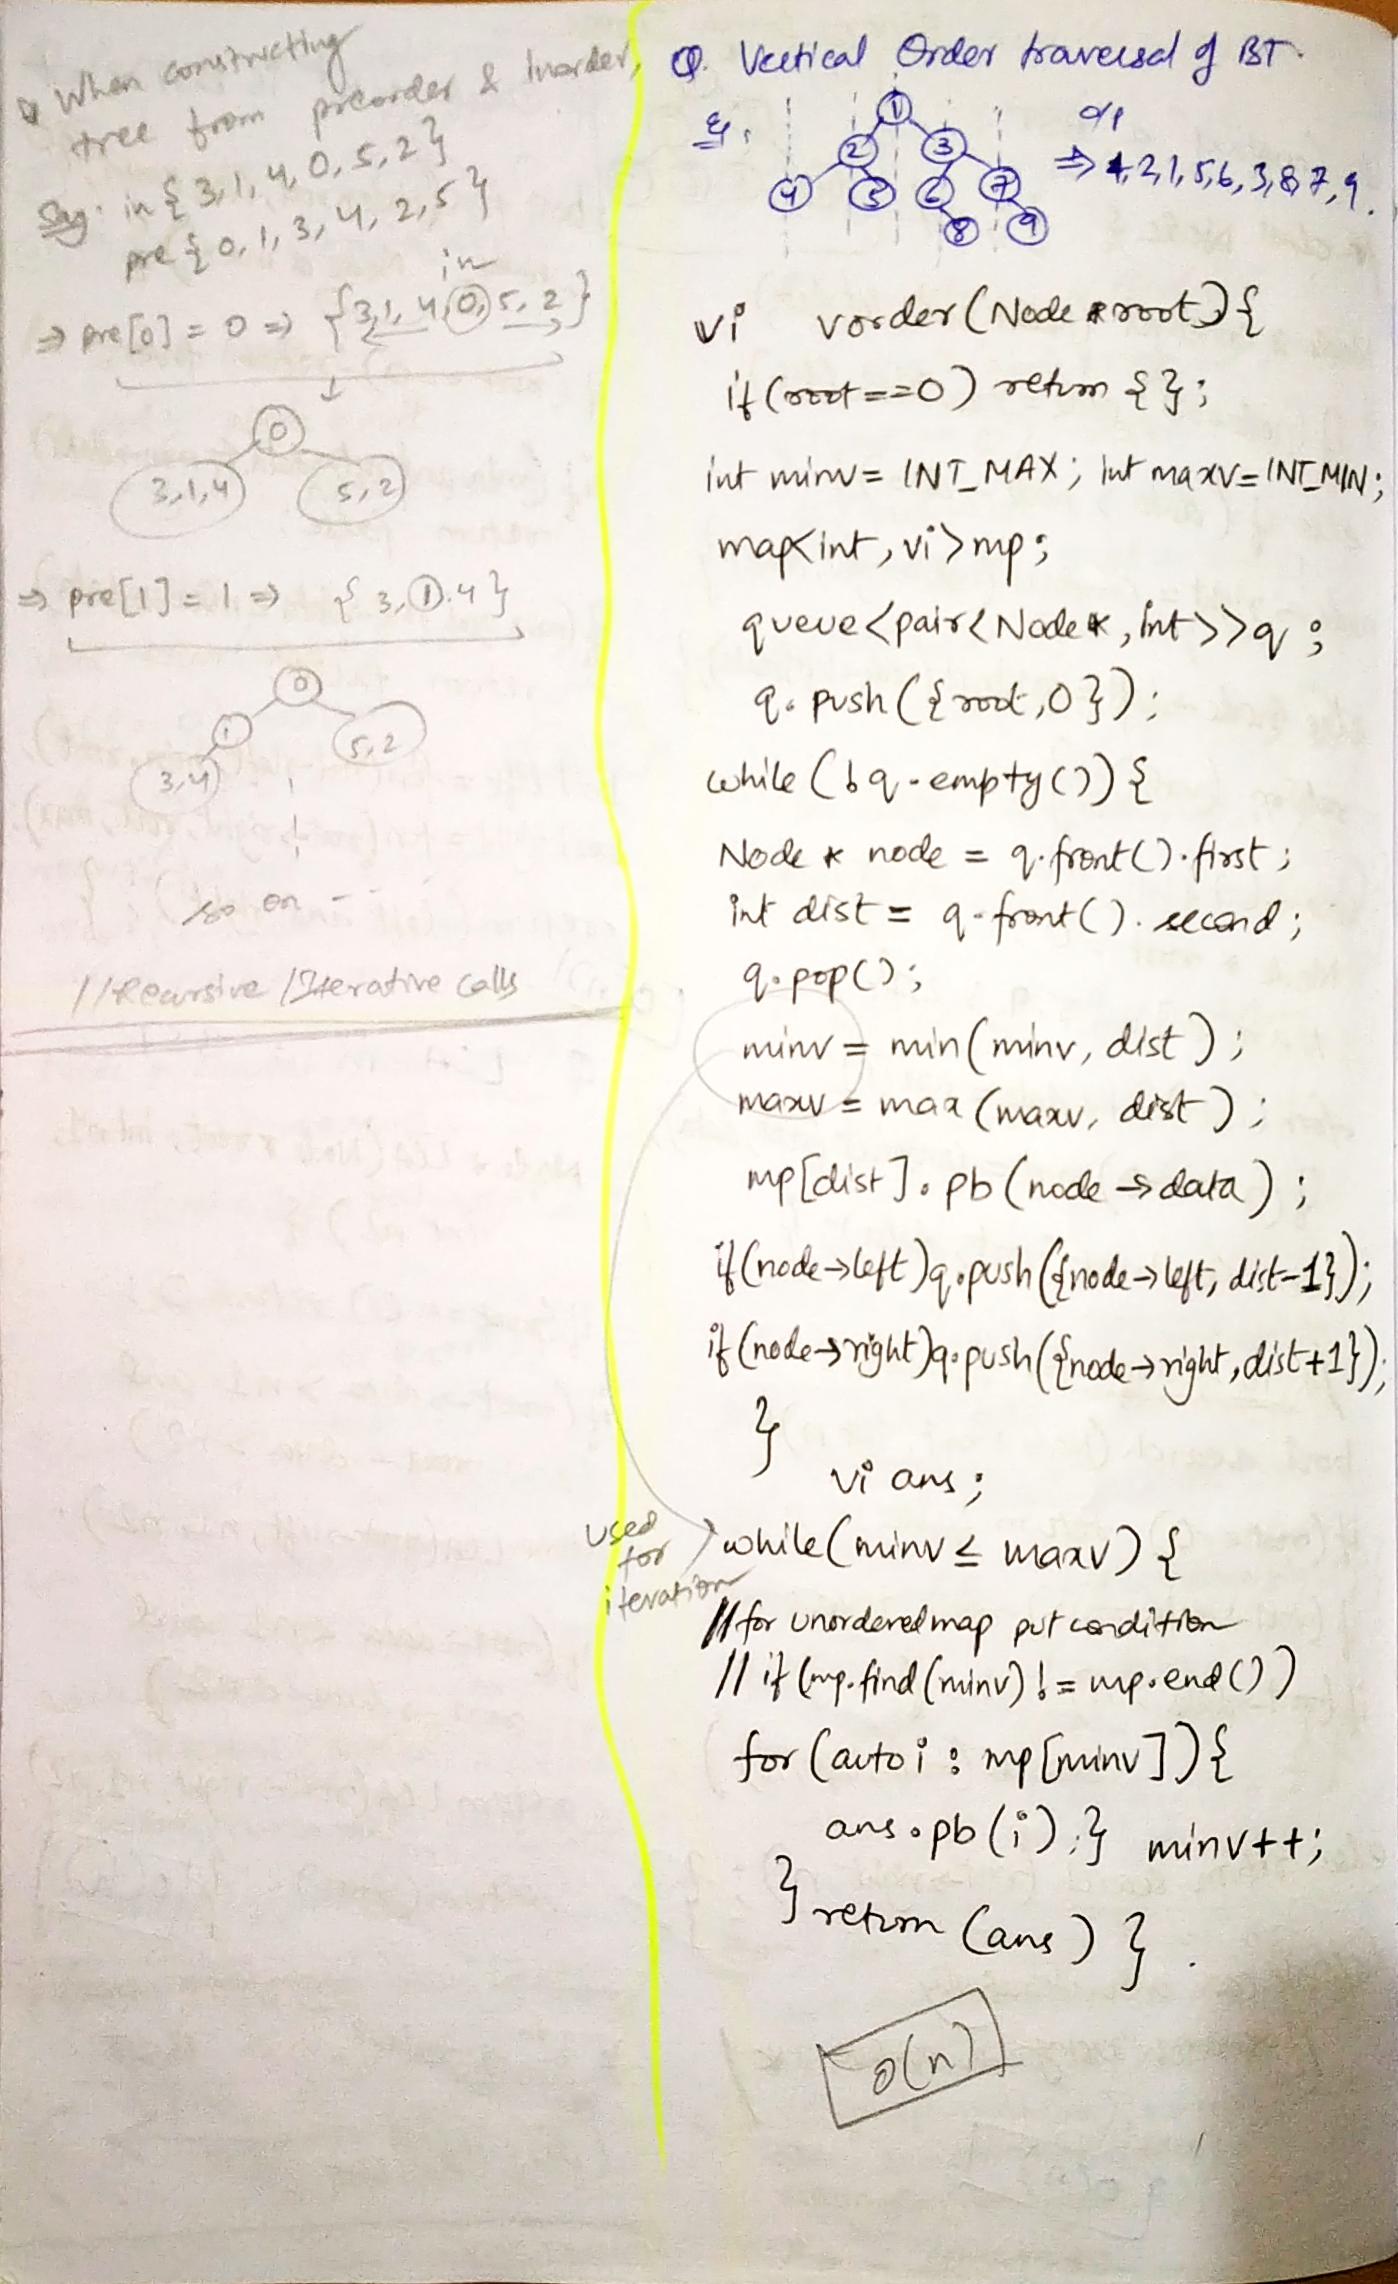 When constructing
tree from preorder & Inorder,
Say. in { 3, 1, 4, 0, 5, 2 }
pre { 0, 1, 3, 4, 2, 5 }
in
⇒ pre[0] = 0 ⇒ { 3, 1, 4, 0, 5, 2 }
0
3,1,4 5,2
⇒ pre[1] = 1 ⇒ { 3, 1, 4 }
0
1 5,2
3,4
so on - -
// Recursive / Iterative calls
Q. Vertical Order traversal of BT.
Eg. o/p
1
2 3
4 5 6 7
8 9
⇒ 4, 2, 1, 5, 6, 3, 8, 7, 9.
vi vorder (Node *root) {
if (root == 0) return { };
int minv = INT_MAX; int maxv = INT_MIN;
map<int, vi> mp;
queue<pair<Node*, int>> q;
q.push ({root, 0});
while (!q.empty()) {
Node * node = q.front().first;
int dist = q.front().second;
q.pop();
minv = min (minv, dist);
maxv = max (maxv, dist);
mp[dist].pb (node → data);
if (node → left) q.push ({node → left, dist-1});
if (node → right) q.push ({node → right, dist+1});
}
vi ans;
used
for
iteration
while (minv ≤ maxv) {
// for unorderedmap put condition
// if (mp.find (minv) != mp.end())
for (auto i : mp [minv]) {
ans.pb (i); } minv++;
} return (ans) }.
O(n)